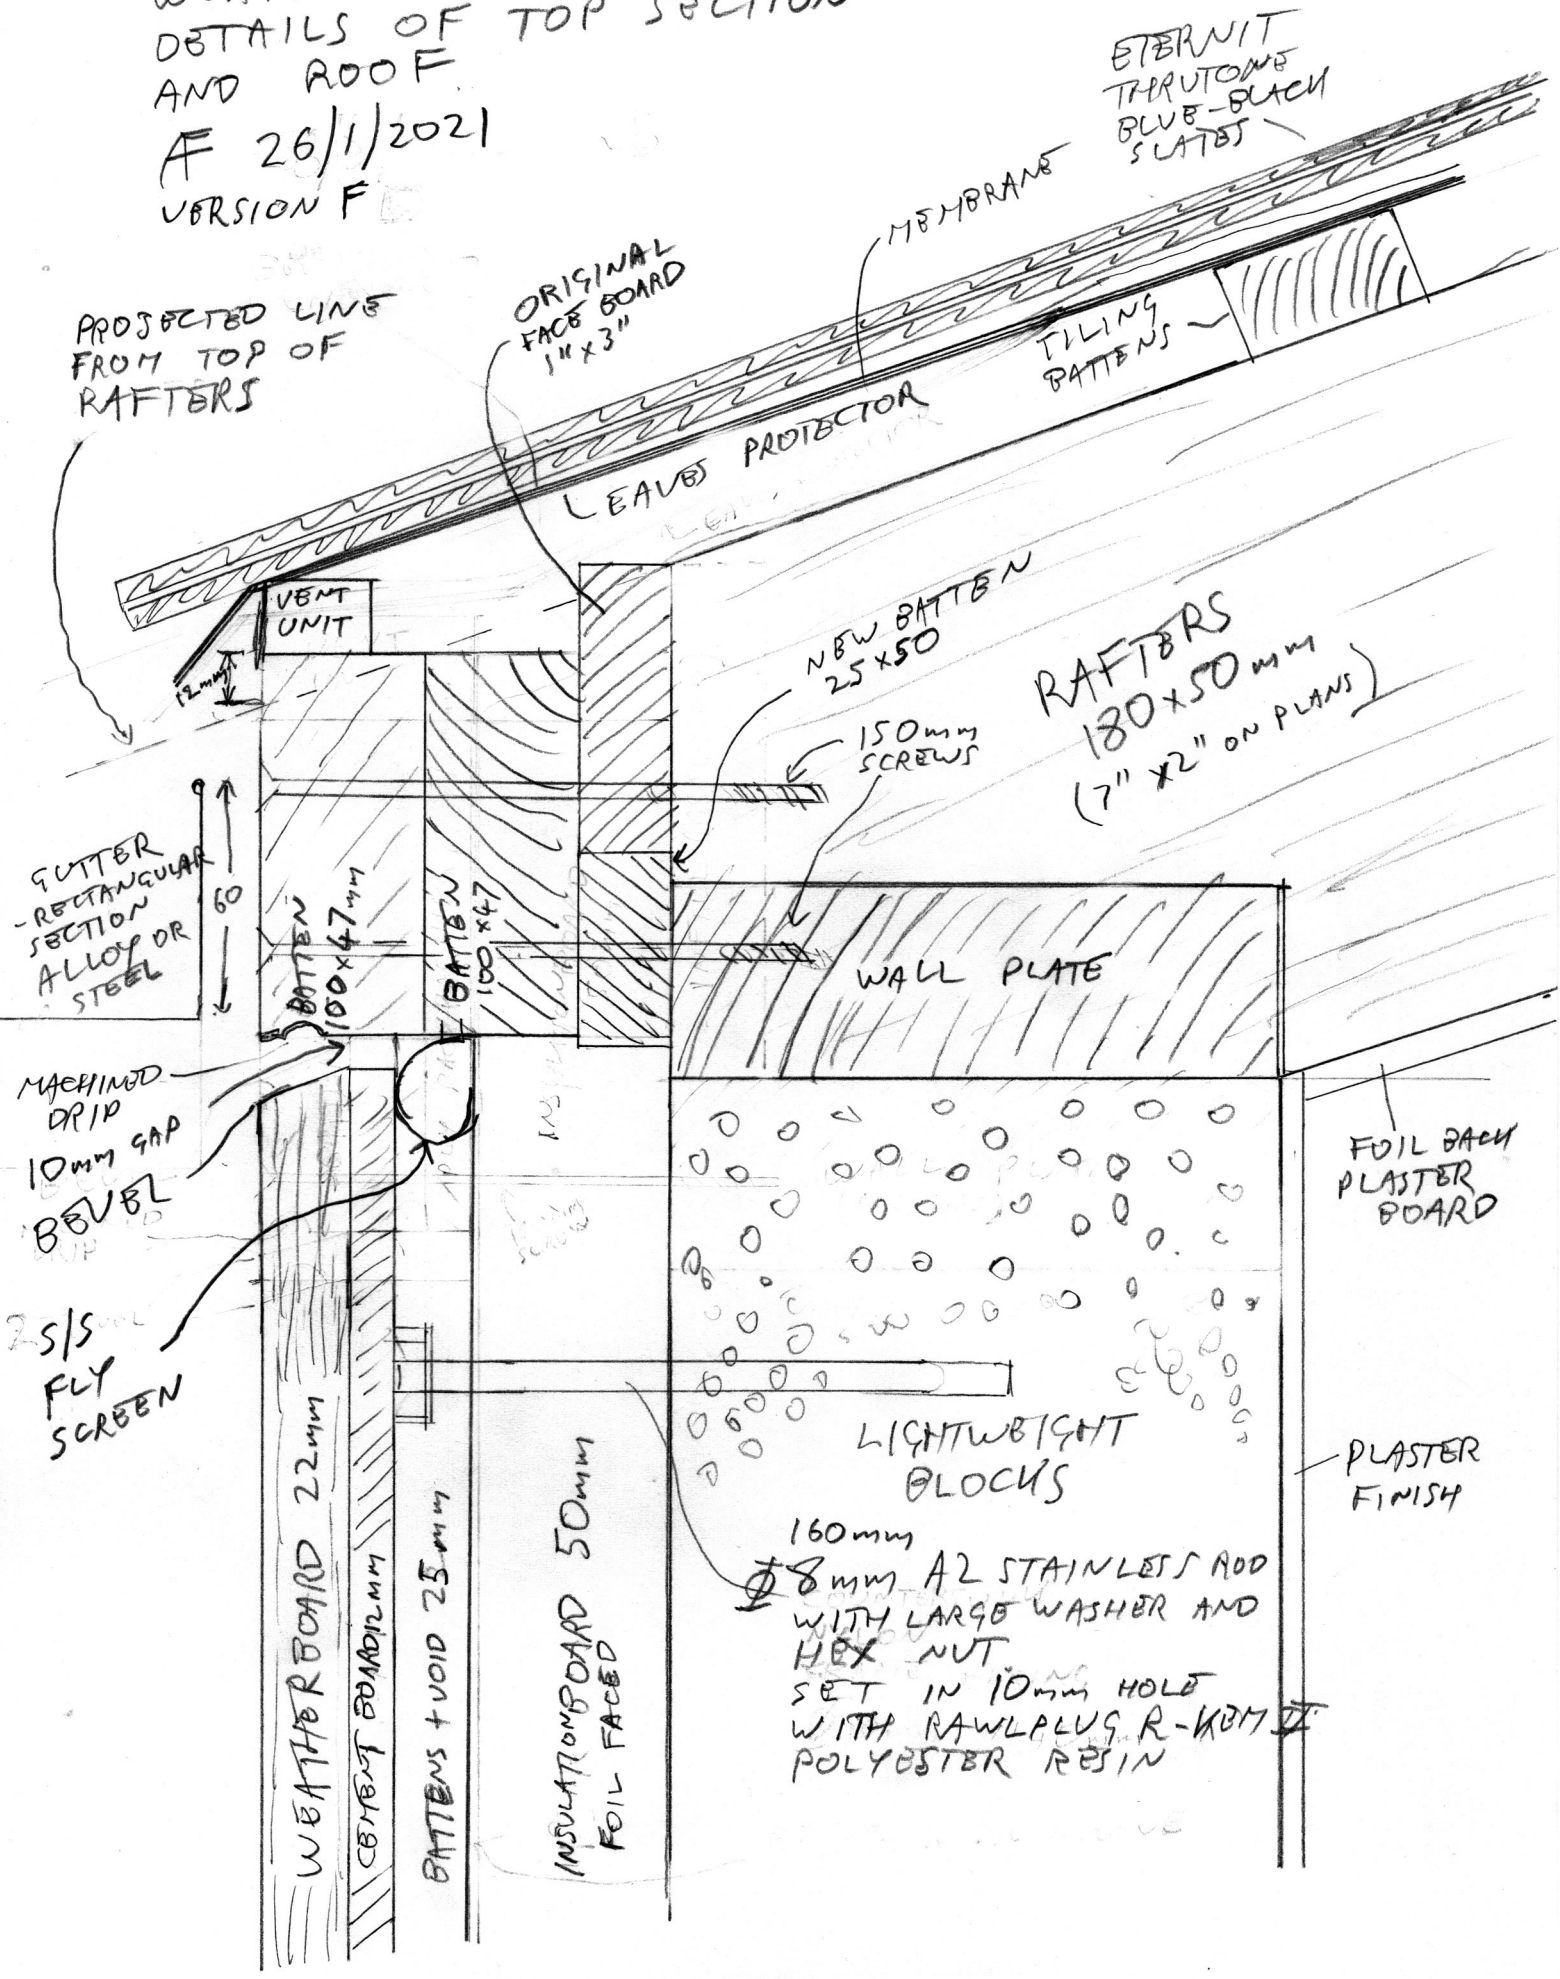 DETAILS OF TOP SECTION
AND ROOF
AF 26/1/2021
VERSION F
ETERNIT
THRUTONE
BLUE-BLACK
SLATES
MEMBRANE
ORIGINAL
FACE BOARD
1" x 3"
PROJECTED LINE
FROM TOP OF
RAFTERS
TILING
BATTENS
EAVES PROTECTOR
VENT
UNIT
12mm
NEW BATTEN
25x50
RAFTERS
180x50mm
(7" x2" ON PLANS)
150mm
SCREWS
GUTTER
-RECTANGULAR
SECTION
ALLOY OR
STEEL
60
BATTEN
100x47mm
BATTEN
100x47
WALL PLATE
MACHINED
DRIP
10mm GAP
BEVEL
FOIL BACK
PLASTER
BOARD
S/S
FLY
SCREEN
LIGHTWEIGHT
BLOCKS
PLASTER
FINISH
160mm
8mm A2 STAINLESS ROD
WITH LARGE WASHER AND
HEX NUT
SET IN 10mm HOLE
WITH RAWLPLUG R-KEM II
POLYESTER RESIN
WEATHERBOARD 22mm
CEMENT BOARD 12mm
BATTENS + VOID 25mm
INSULATION BOARD 50mm
FOIL FACED